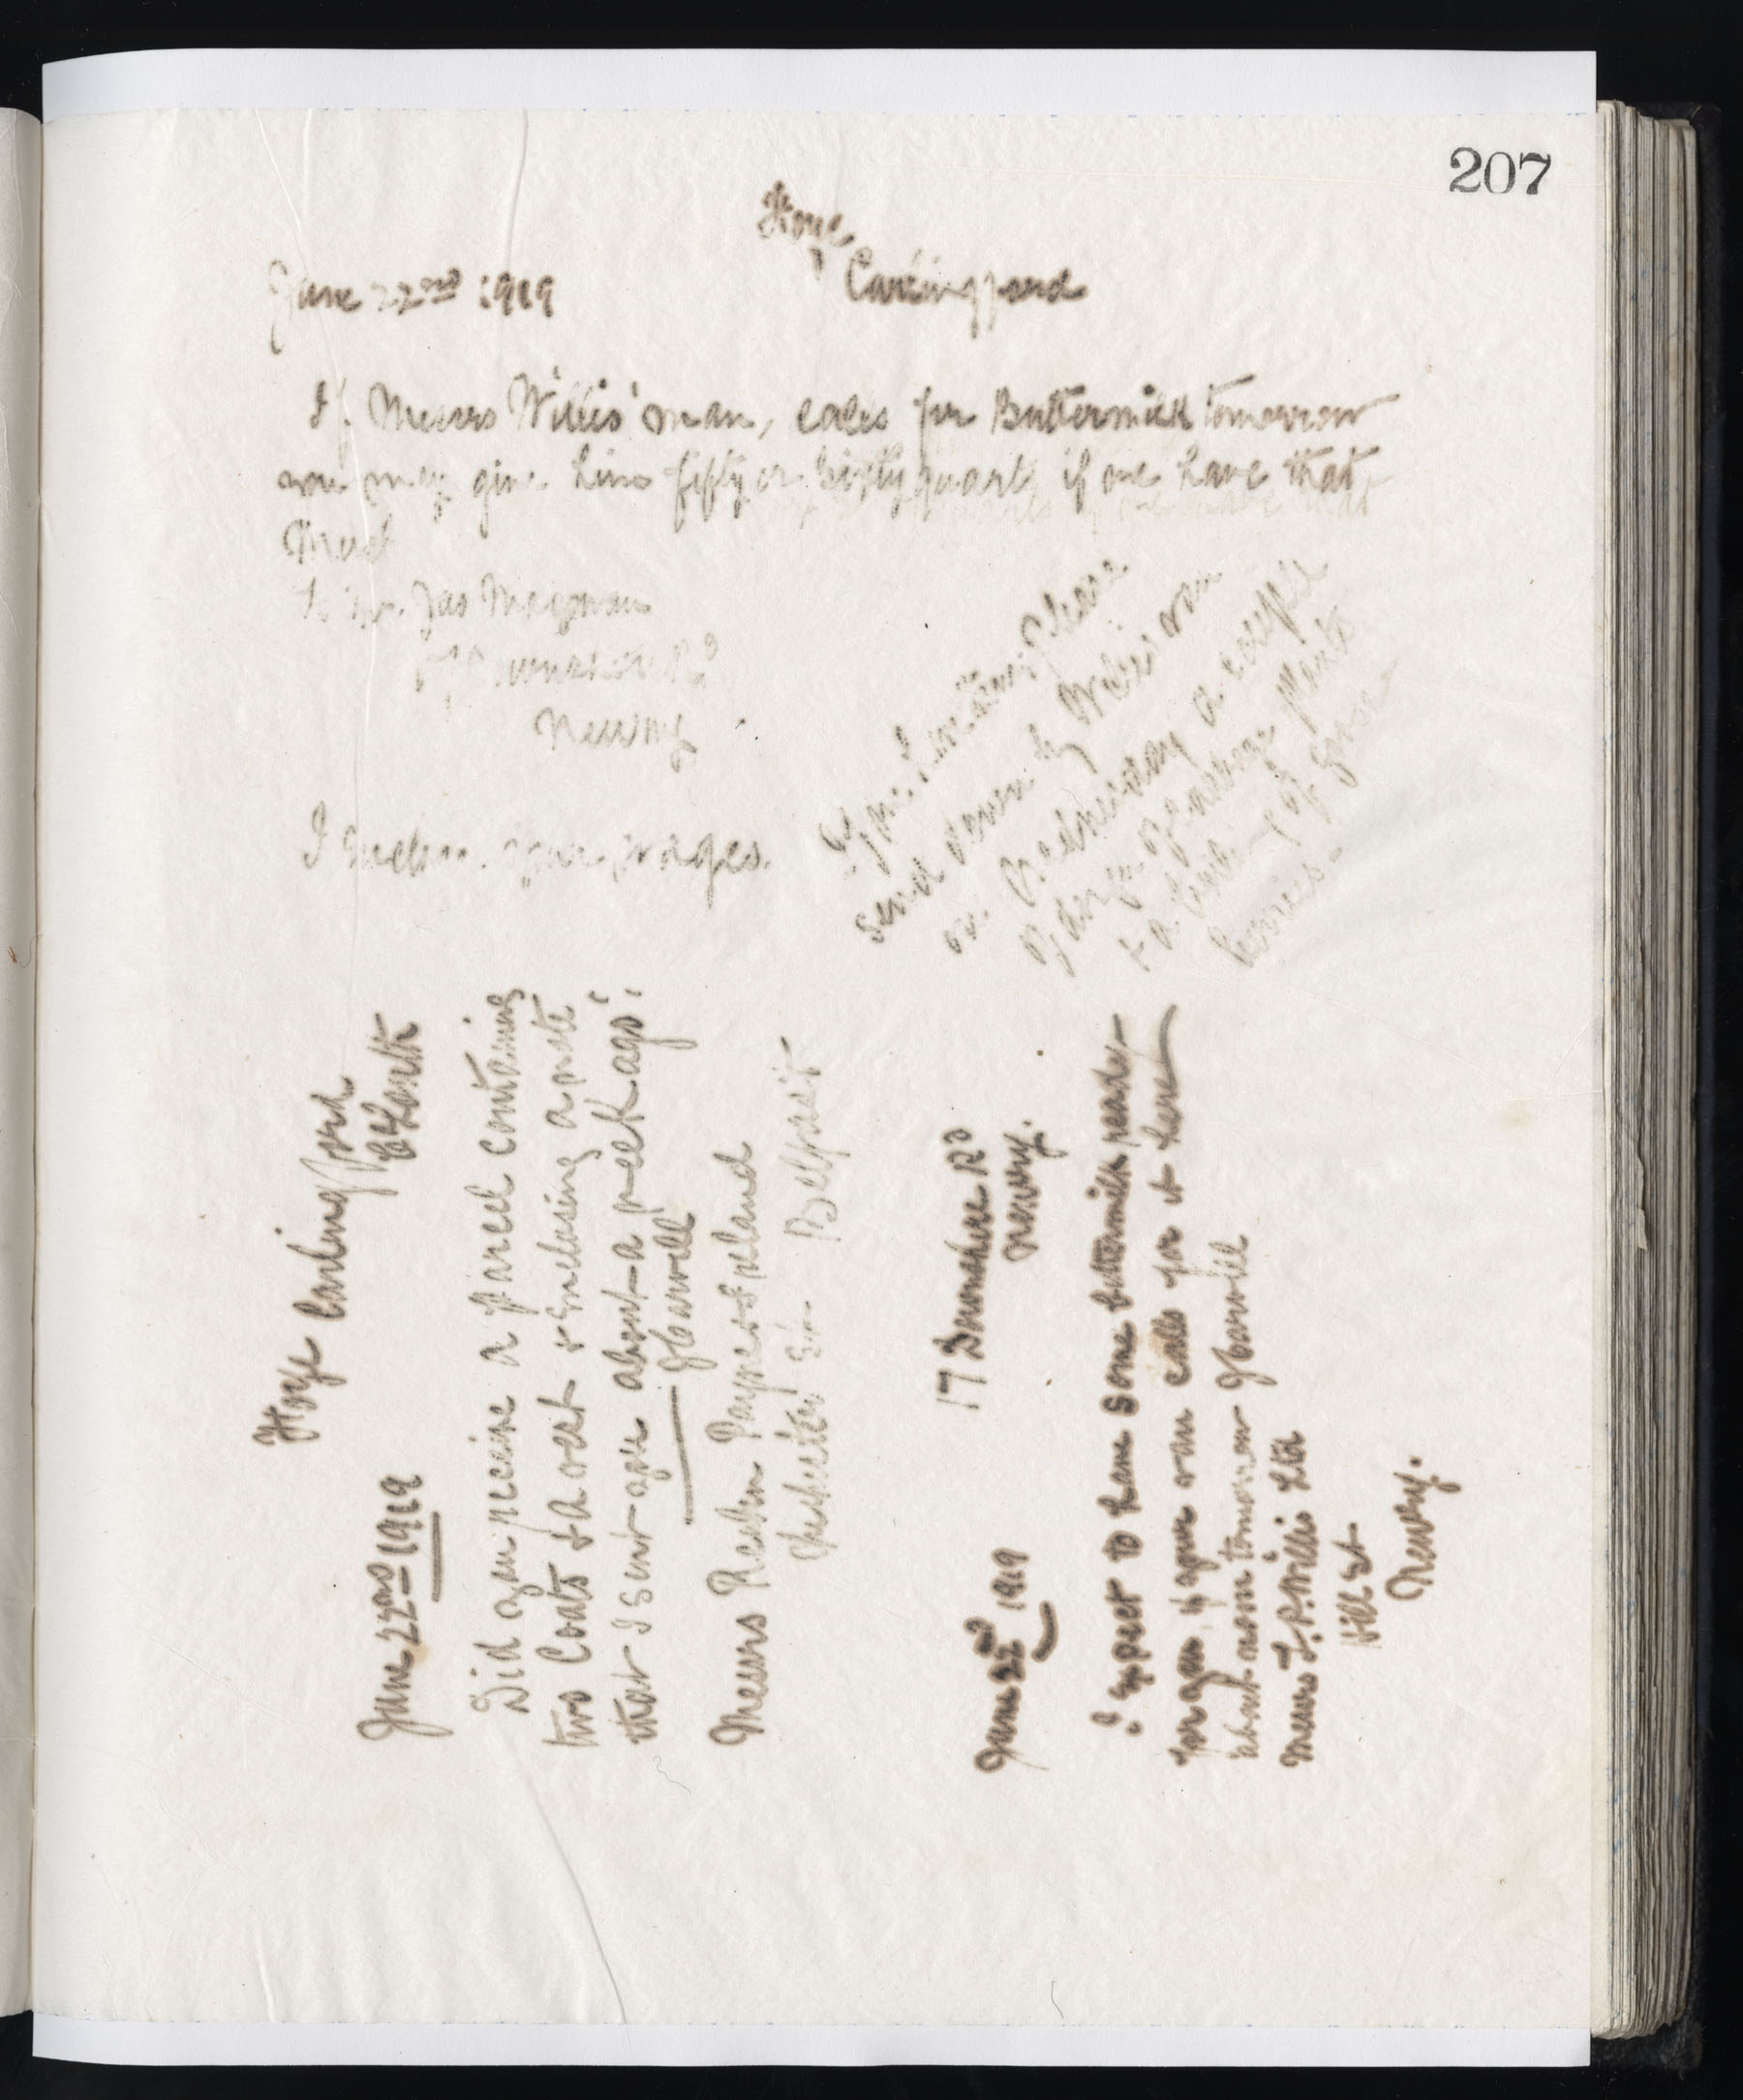 207
Carlingford
June 22nd 1919
If Messrs Willis' man, calls for Buttermilk tomorrow
you may give him fifty or sixty quarts if we have that
much
To Mr. Jas
Newry
I enclose your wages.
If you have time please
send down by Willis van
on Wednesday a couple
of dozen of cabbage plants
& a little of goose
berries -
Carlingford
Co Louth
June 22nd 1919
Did you receive a parcel containing
two Coats & a vest & enclosing a note
that I sent you about a week ago?
Messrs Payne & Ireland
St. Belfast
17 Downshire Rd
Newry.
June 22nd 1919
I expect to have some buttermilk ready
for you if your van calls for it here
about noon tomorrow
Messrs Willis Ltd
Hill St
Newry.